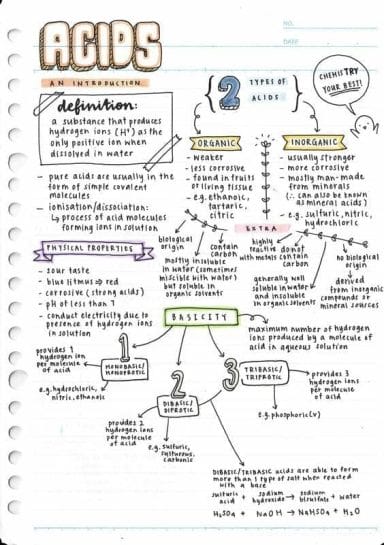 NO.
DATE
ACIDS
AN INTRODUCTION
definition:
a substance that produces
hydrogen ions (H⁺) as the
only positive ion when
dissolved in water
- pure acids are usually in the
form of simple covalent
molecules
- ionisation/dissociation:
↳ process of acid molecules
forming ions in solution
PHYSICAL PROPERTIES
- sour taste
- blue litmus ⇒ red
- corrosive (strong acids)
- pH of less than 7
- conduct electricity due to
presence of hydrogen ions
in solution
2 TYPES OF
ACIDS
CHEMISTRY
YOUR BEST!
ORGANIC
- weaker
- less corrosive
- found in fruits
or living tissue
- e.g. ethanoic,
tartaric,
citric
INORGANIC
- usually stronger
- more corrosive
- mostly man-made
from minerals
(∴ can also be known
as mineral acids)
- e.g. sulfuric, nitric,
hydrochloric
EXTRA
biological
origin
mostly insoluble
in water (sometimes
miscible with water)
but soluble in
organic solvents
contain
carbon
highly
reactive
with metals
generally well
soluble in water
and insoluble
in organic solvents
do not
contain
carbon
no biological
origin
↳ derived
from inorganic
compounds or
mineral sources
BASICITY
maximum number of hydrogen
ions produced by a molecule of
acid in aqueous solution
1
MONOBASIC/
MONOPROTIC
provides 1
hydrogen ion
per molecule
of acid
e.g. hydrochloric,
nitric, ethanoic
2
DIBASIC/
DIPROTIC
provides 2
hydrogen ions
per molecule
of acid
e.g. sulfuric,
sulfurous,
carbonic
3
TRIBASIC/
TRIPROTIC
provides 3
hydrogen ions
per molecule
of acid
e.g. phosphoric(V)
DIBASIC/TRIBASIC acids are able to form
more than 1 type of salt when reacted
with a base
sulfuric acid + sodium hydroxide → sodium bisulfate + water
H₂SO₄ + NaOH → NaHSO₄ + H₂O